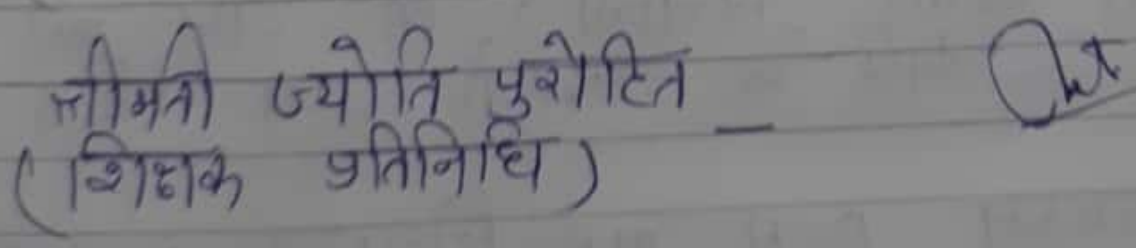 श्रीमती ज्योति पुरोहित _
(शिक्षक प्रतिनिधि)